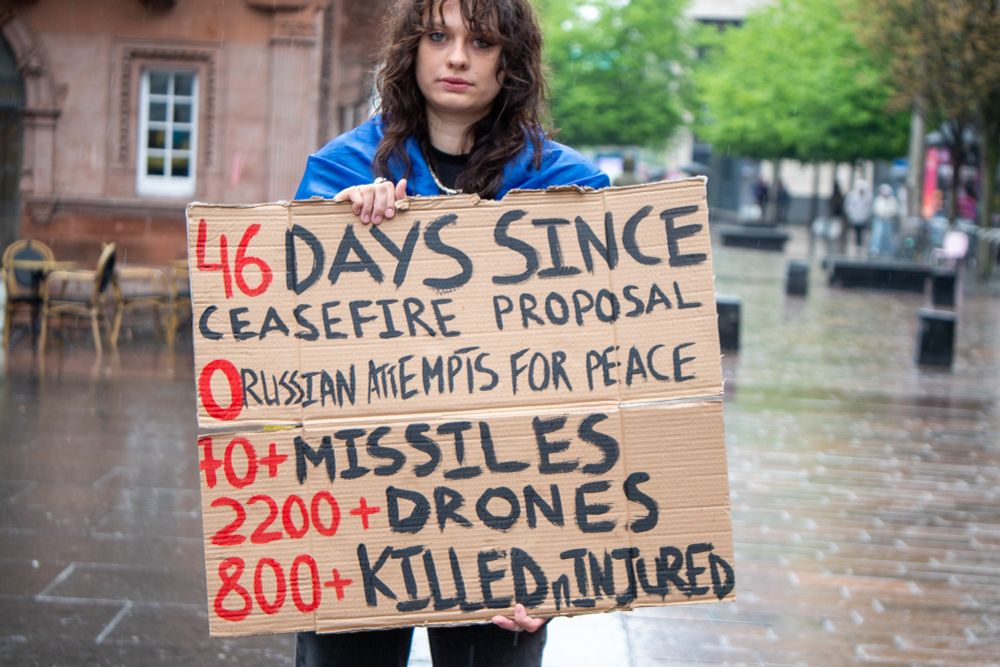 46 DAYS SINCE
CEASEFIRE PROPOSAL
0 RUSSIAN ATTEMPTS FOR PEACE
70+ MISSILES
2200+ DRONES
800+ KILLED n INJURED